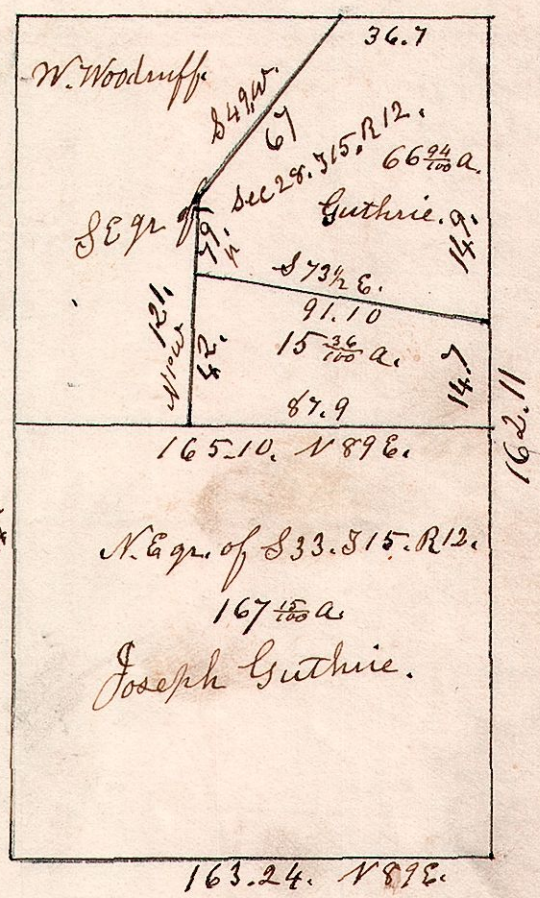 36.7
W. Woodruff.
S49W.
67
Sec 28. T15. R12.
66 94/100 a.
Guthrie.
SE qr. of
79.
S 73½ E.
91.10
15 36/100 a.
121.
N1°W
42.
14.7
87.9
162.11
165.10. N89E.
N.E qr. of S33. T15. R12.
167 15/100 a.
Joseph Guthrie.
163.24. N89E.